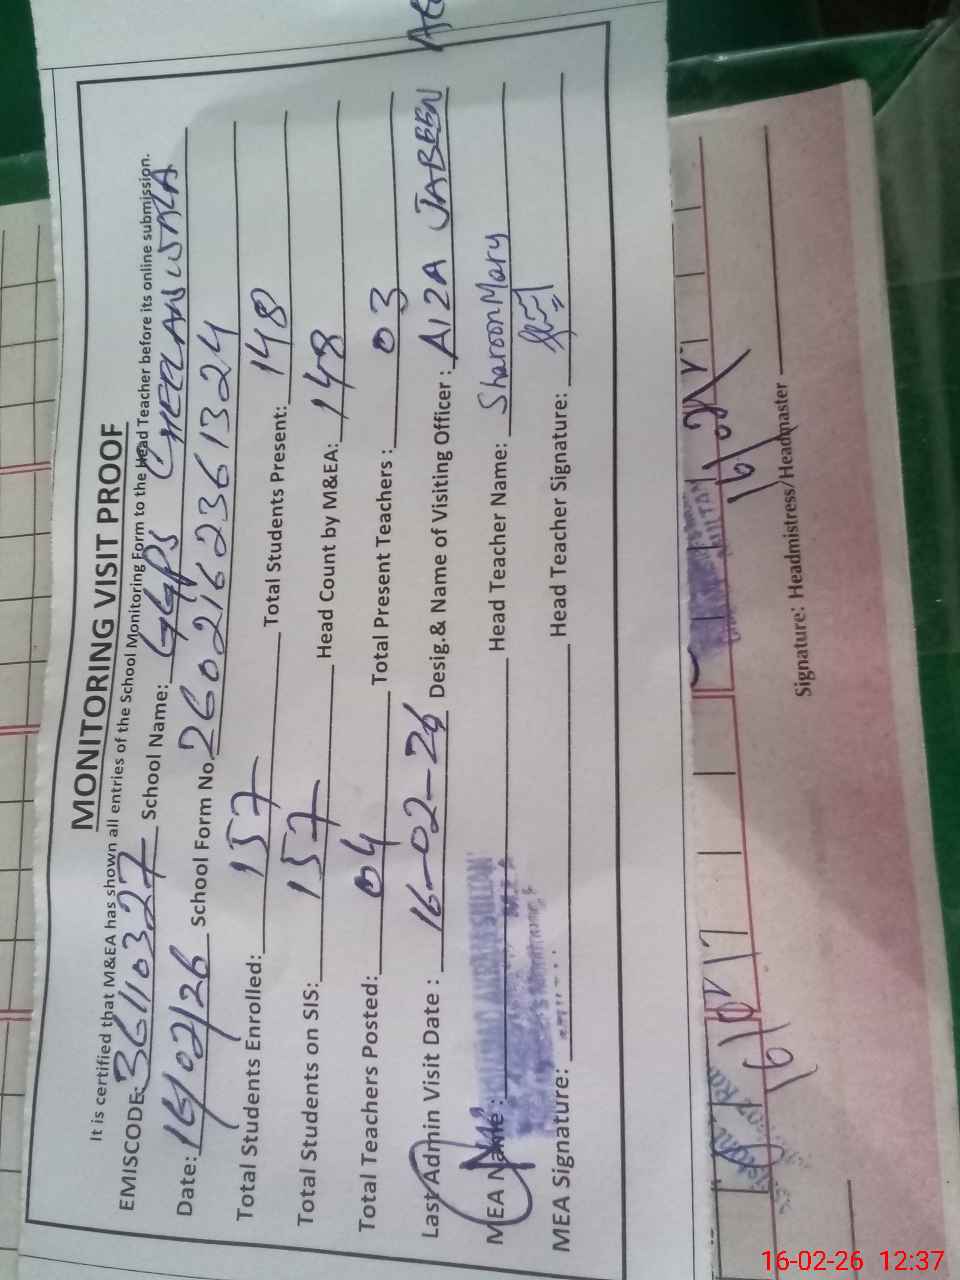 MONITORING VISIT PROOF
It is certified that M&EA has shown all entries of the School Monitoring Form to the Head Teacher before its online submission.
EMISCODE: 36110327 School Name: GGPS CHEELANWALA
Date: 16/02/26 School Form No. 2602162361324
Total Students Enrolled: 157 Total Students Present: 148
Total Students on SIS: 157 Head Count by M&EA: 148
Total Teachers Posted: 04 Total Present Teachers : 03
Last Admin Visit Date : 16-02-26 Desig.& Name of Visiting Officer : AIZA JABEEN
MEA Name : Head Teacher Name: Sharoon Mary
MEA Signature: Head Teacher Signature:
Signature: Headmistress/Headmaster
16-02-26 12:37